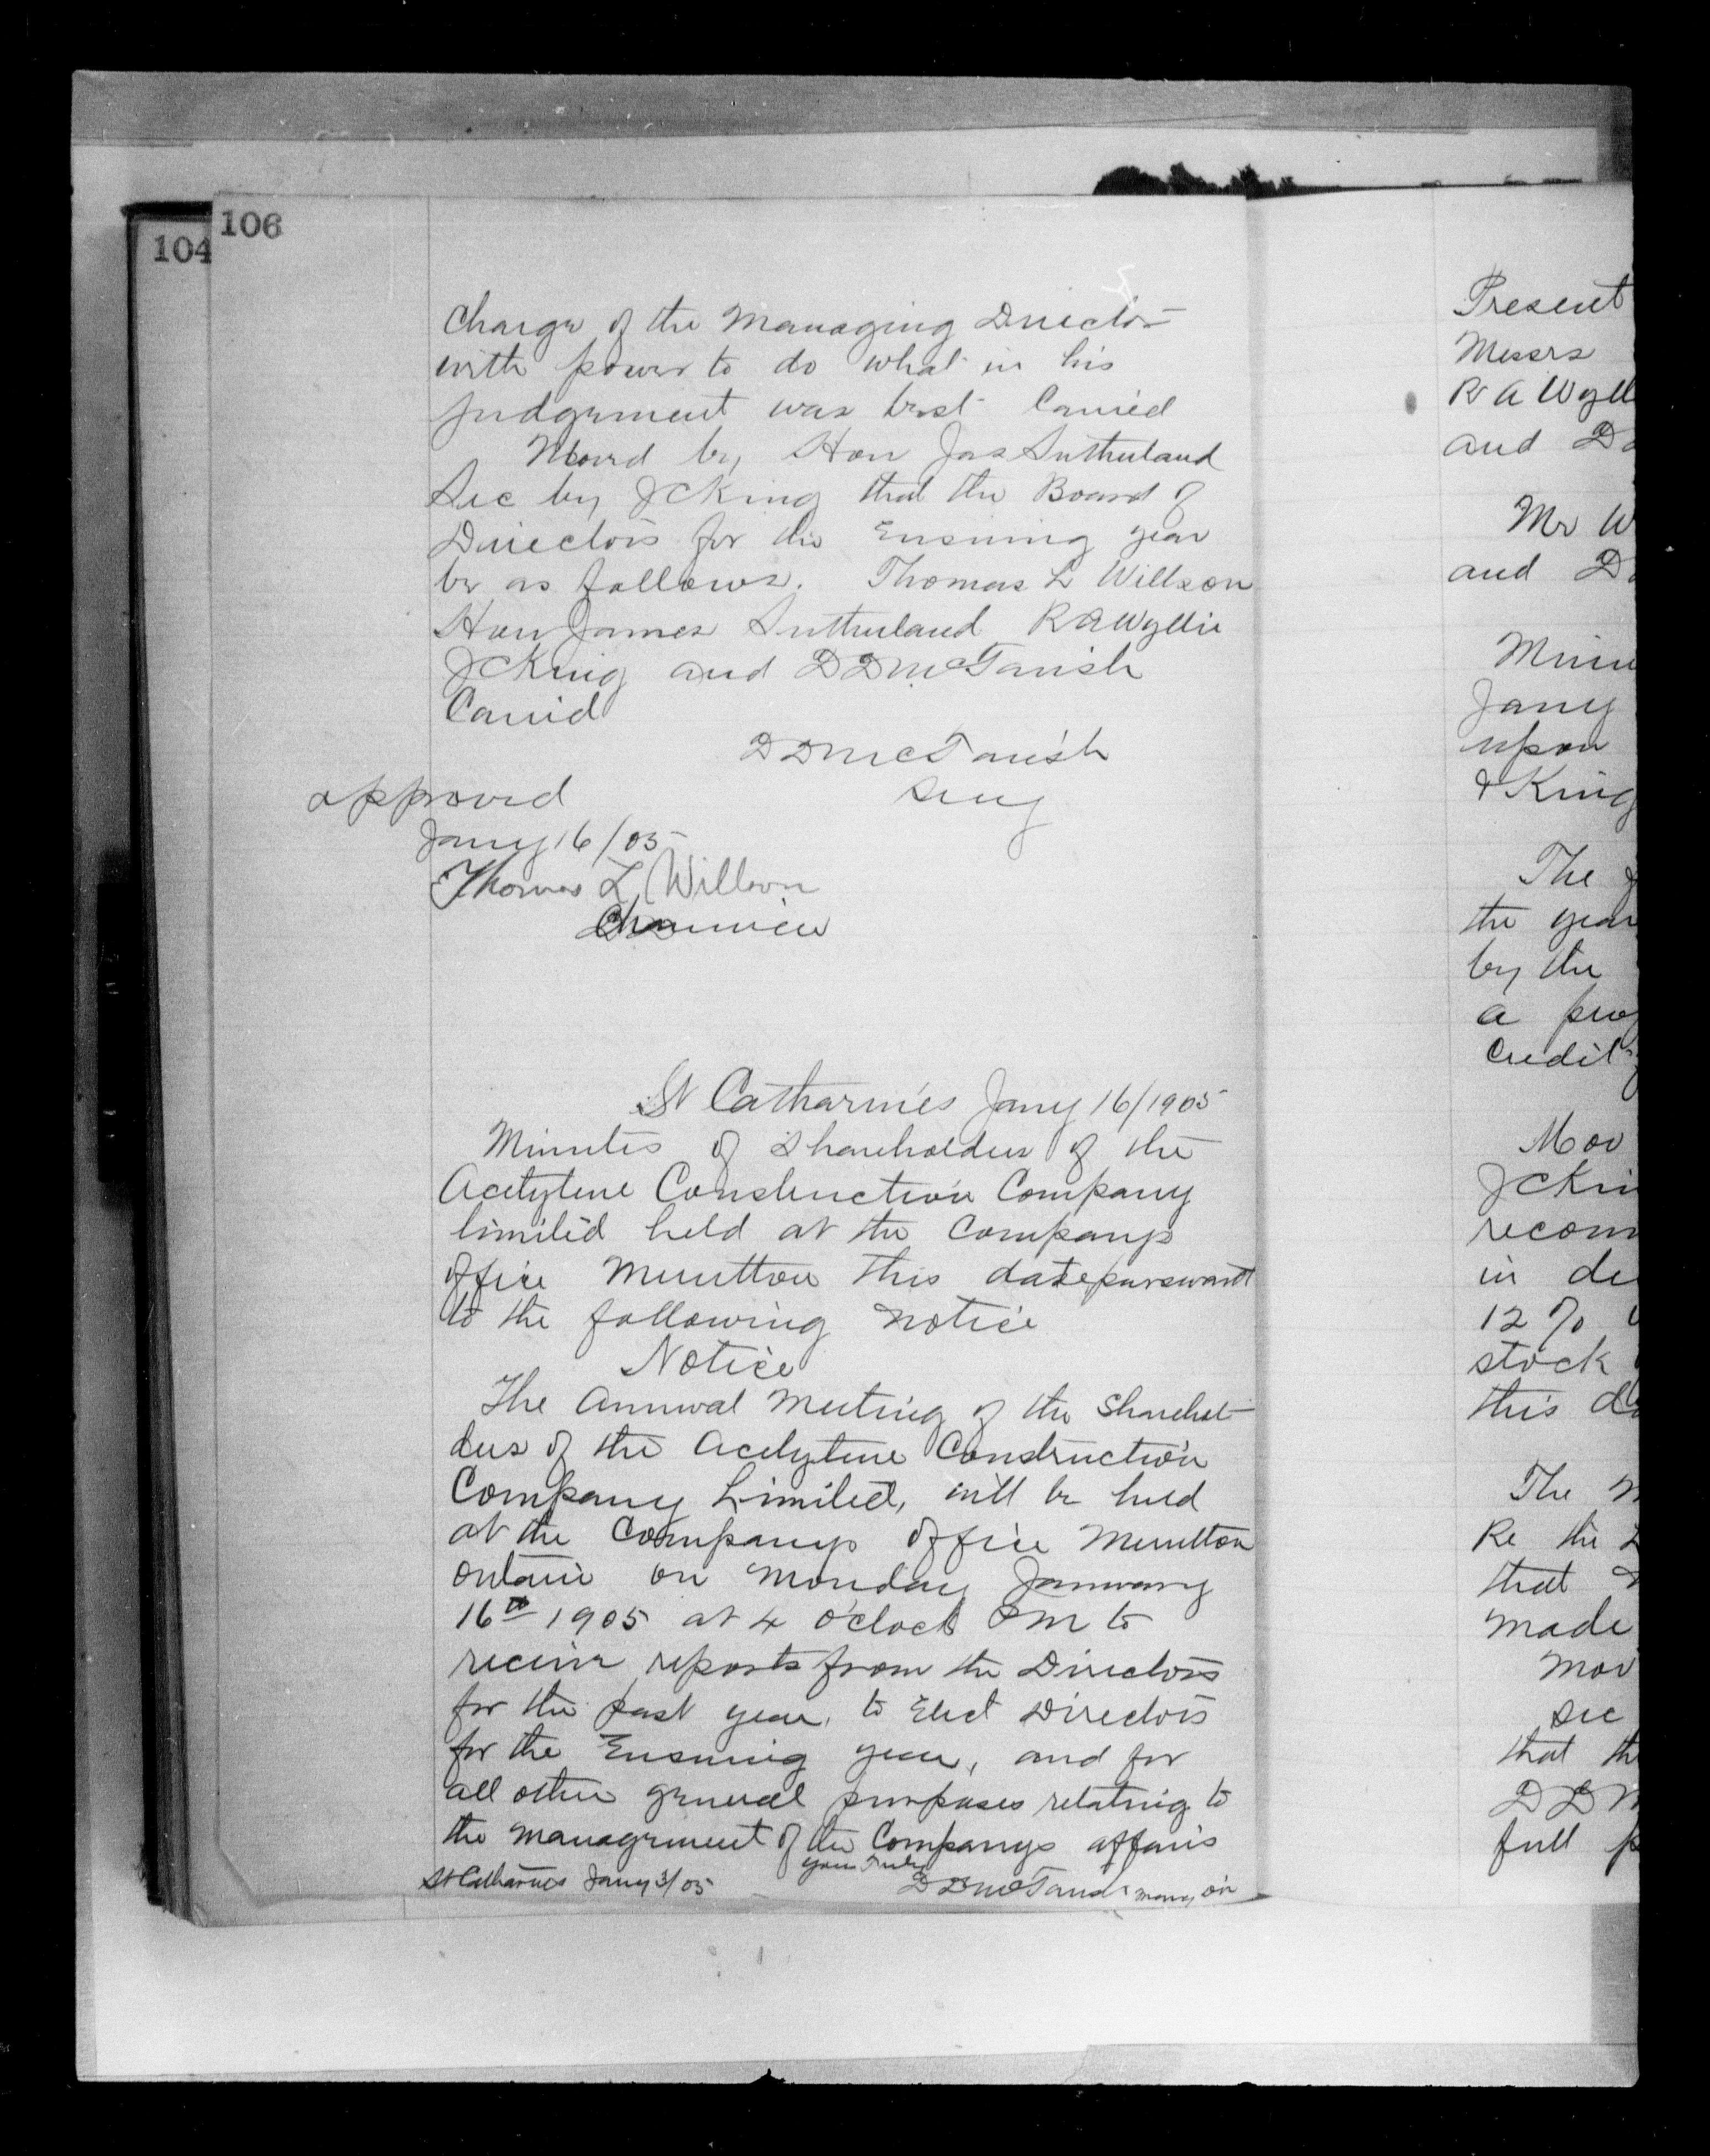 106
104
Charge of the Managing Director
with power to do what in his
judgement was best Carried
Moved by Hon Jas Sutherland
Sec by J C King that the Board of
Directors for the Ensuing year
be as follows. Thomas L Willson
Hon James Sutherland R A Wyllie
J C King and D D McTavish
Carried
D D McTavish
Secy
approved
Jany 16/05
Thomas L Willson
Chairman
St Catharines Jany 16/1905
Minutes of Shareholders of the
Acetylene Construction Company
limited held at the Companys
office Merritton this date pursuant
to the following notice
Notice
The Annual Meeting of the Sharehol-
ders of the Acetylene Construction
Company Limited, will be held
at the Companys office Merritton
Ontario on Monday January
16th 1905 at 4 O'clock PM to
receive reports from the Directors
for the past year, to Elect Directors
for the Ensuing year, and for
all other general purposes relating to
the management of the Companys affairs
Yours Truly
St Catharines Jany 3/05 D D McTavish Mang Dir
Present
Messrs
R A Wyll
and D
Mr W
and D
Minu
Jany
upon
& King
The
the year
by the
a prof
Credit
Mov
J C Kin
recom
in de
12 %
stock
this d
The M
Re the
that
made
Mov
Sec
that th
D D M
full p